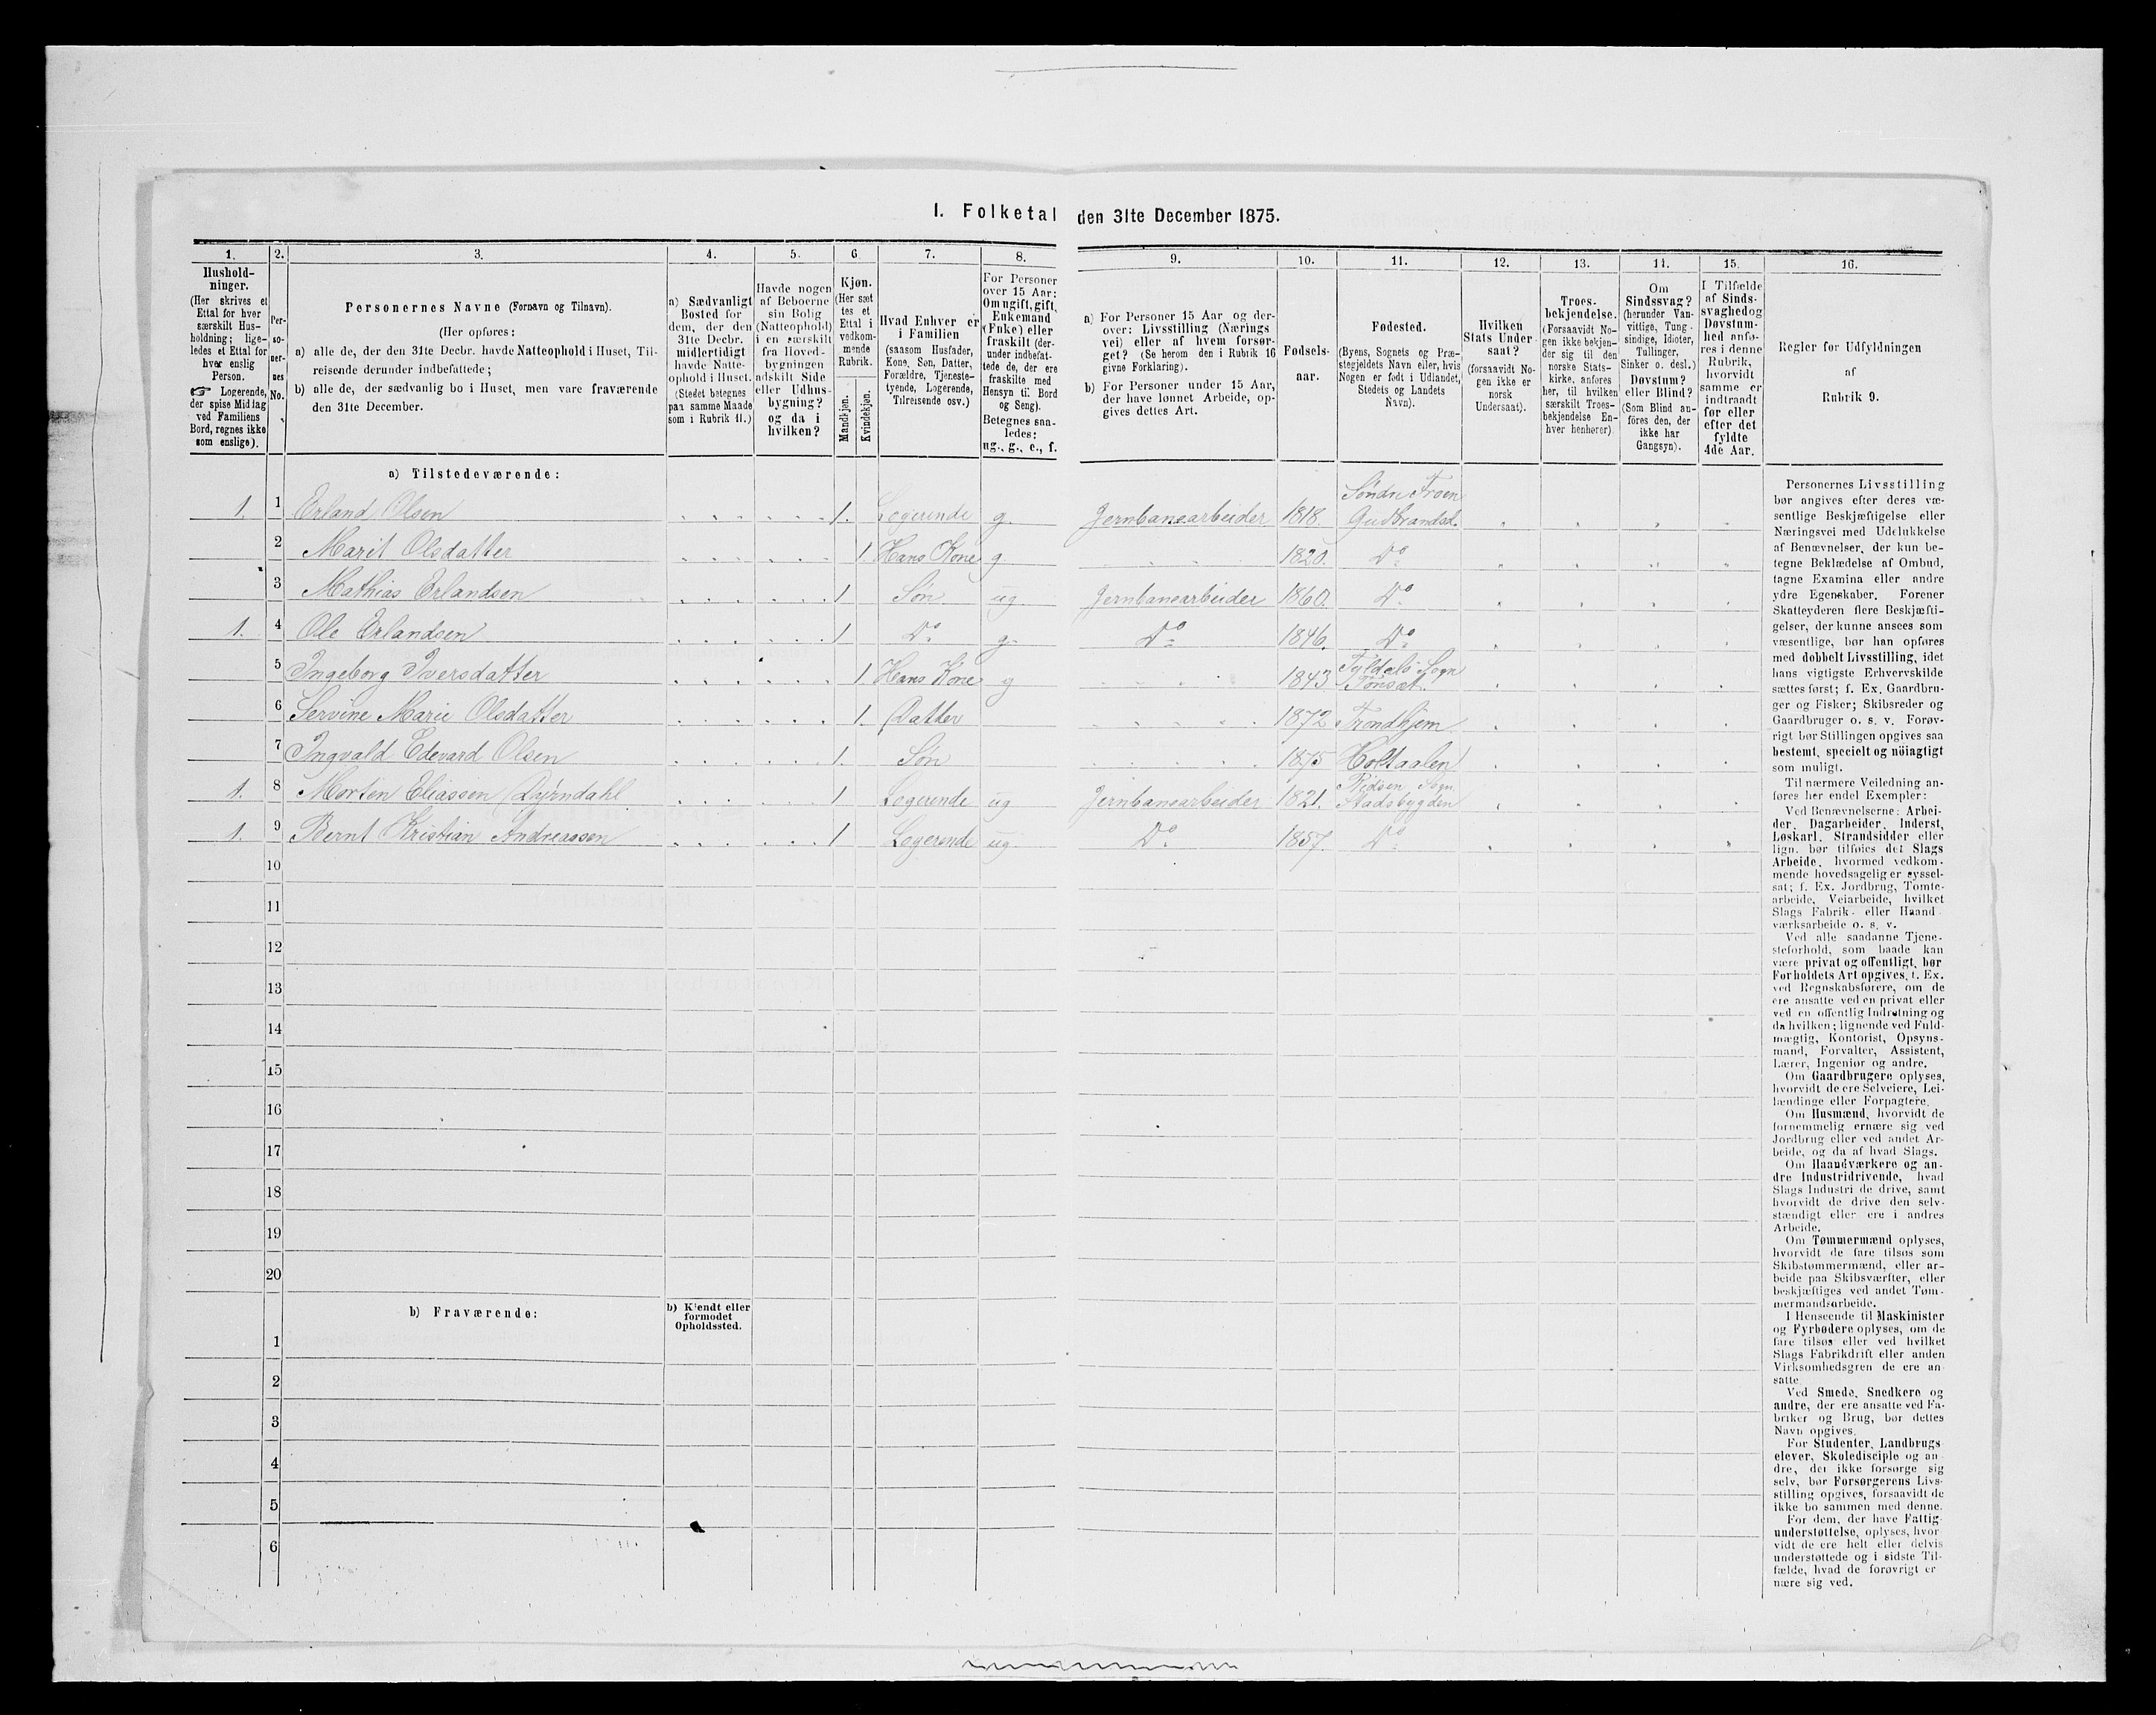 I. Folketal den 31te December 1875.
1.
Hushold-
ninger.
(Her skrives et
Ettal for hver
særskilt Hus-
holdning; lige-
ledes et Ettal for
hver enslig
Person.
☞ Logerende,
der spise Middag
ved Familiens
Bord, regnes ikke
som enslige).
2.
Per-
so-
ner-
nes
No.
3.
Personernes Navne (Fornavn og Tilnavn).
(Her opføres:
a) alle de, der den 31te Decbr. havde Natteophold i Huset, Til-
reisende derunder indbefattede;
b) alle de, der sædvanlig bo i Huset, men vare fraværende
den 31te December.
4.
a) Sædvanligt
Bosted for
dem, der den
31te Decbr.
midlertidigt
havde Natte-
ophold i Huset.
(Stedet betegnes
paa samme Maade
som i Rubrik 11.)
5.
Havde nogen
af Beboerne
sin Bolig
(Natteophold)
i en særskilt
fra Hoved-
bygningen
adskilt Side
eller Udhus-
bygning?
og da i
hvilken?
6.
Kjøn.
(Her sæt
tes et
Ettal i
vedkom-
mende
Rubrik.
Mandkjøn.
Kvindekjøn.
7.
Hvad Enhver er
i Familien
(saasom Husfader,
Kone, Søn, Datter,
Forældre, Tjeneste-
tyende, Logerende,
Tilreisende osv.)
8.
For Personer
over 15 Aar:
Om ugift, gift,
Enkemand
(Enke) eller
fraskilt (der-
under indbefat-
tede de, der ere
fraskilte med
Hensyn til Bord
og Seng).
Betegnes saa-
ledes:
ug., g., e., f.
9.
a) For Personer 15 Aar og der-
over: Livsstilling (Nærings
vei) eller af hvem forsør-
get? (Se herom den i Rubrik 16
givne Forklaring).
b) For Personer under 15 Aar,
der have lønnet Arbeide, op-
gives dettes Art.
10.
Fødsels-
aar.
11.
Fødested.
(Byens, Sognets og Præ-
stegjeldets Navn eller, hvis
Nogen er født i Udlandet,
Stedets og Landets
Navn).
12.
Hvilken
Stats Under
saat?
(forsaavidt No-
gen ikke er
norsk
Undersaat).
13.
Troes-
bekjendelse.
(Forsaavidt No-
gen ikke bekjen-
der sig til den
norske Stats-
kirke, anføres
her, til hvilken
særskilt Troes-
bekjendelse En-
hver henhører)
14.
Om
Sindssvag?
(herunder Van-
vittige, Tung-
sindige, Idioter,
Tullinger,
Sinker o. desl.)
Døvstum?
eller Blind?
(Som Blind an-
føres den, der
ikke har
Gangsyn).
15.
I Tilfælde
af Sinds-
svaghed og
Døvstum-
hed anfø-
res i denne
Rubrik,
hvorvidt
samme er
indtraadt
før eller
efter det
fyldte
4de Aar.
16.
Regler for Udfyldningen
af
Rubrik 9.
a) Tilstedeværende:
1. 1 Erland Olsen 1. Logerende g. Jernbanearbeider 1818. Søndre Froen Gudbrandsd.
2 Marit Olsdatter 1. Hans Kone g 1820. Do
3 Mathias Erlandsen 1 Søn ug. Jernbanearbeider 1860. Do
1. 4 Ole Erlandsen 1 Do g. Do 1846. Do
5 Ingeborg Iversdatter 1. Hans Kone g 1843 Tyldals Sogn Tønset.
6 Servine Marie Olsdatter 1. Datter 1872 Trondhjem
7 Ingvald Edevard Olsen 1. Søn 1875 Holtaalen
1. 8 Morten Eliassen 1 Logerende ug Jernbanearbeider 1821. Sogn Stadsbygden
1. 9 Bernt Kristian Andreassen 1 Logerende ug. Do 1857. Do
10
11
12
13
14
15
16
17
18
19
20
b) Fraværende:
b) Kjendt eller
formodet
Opholdssted.
1
2
3
4
5
6
Personernes Livsstilling
bør angives efter deres væ-
sentlige Beskjæftigelse eller
Næringsvei med Udelukkelse
af Benævnelser, der kun be-
tegne Beklædelse af Ombud,
tagne Examina eller andre
ydre Egenskaber. Forener
Skatteyderen flere Beskjæfti-
gelser, der kunne ansees som
væsentlige, bør han opføres
med dobbelt Livsstilling, idet
hans vigtigste Erhvervskilde
sættes først; f. Ex. Gaardbru-
ger og Fisker; Skibsreder og
Gaardbruger o. s. v. Forøv-
rigt bør Stillingen opgives saa
bestemt, specielt og nöiagtigt
som muligt.
Til nærmere Veiledning an-
føres her endel Exempler:
Ved Benævnelserne: Arbei-
der, Dagarbeider, Inderst,
Løskarl, Strandsidder eller
lign. bør tilføies det Slags
Arbeide, hvormed vedkom-
mende hovedsagelig er syssel-
sat; f. Ex. Jordbrug, Tomte-
arbeide, Veiarbeide, hvilket
Slags Fabrik- eller Haand-
værksarbeide o. s. v.
Ved alle saadanne Tjene-
steforhold, som baade kan
være privat og offentligt, bør
Forholdets Art opgives, f. Ex.
ved Regnskabsførere, om de
ere ansatte ved en privat eller
ved en offentlig Indretning og
da hvilken; lignende ved Fuld-
mægtig, Kontorist, Opsyns-
mand, Forvalter, Assistent,
Lærer, Ingeniør og andre.
Om Gaardbrugere oplyses,
hvorvidt de ere Selveiere, Lei-
lændinge eller Forpagtere.
Om Husmænd, hvorvidt de
fornemmelig ernære sig ved
Jordbrug eller ved andet Ar-
beide, og da af hvad Slags.
Om Haandværkere og an-
dre Industridrivende, hvad
Slags Industri de drive, samt
hvorvidt de drive den selv-
stændigt eller ere i andres
Arbeide.
Om Tømmermænd oplyses,
hvorvidt de fare tilsøs som
Skibstømmermænd, eller ar-
beide paa Skibsværfter, eller
beskjæftiges ved andet Tøm-
mermandsarbeide.
I Henseende til Maskinister
og Fyrbødere oplyses, om de
fare tilsøs eller ved hvilket
Slags Fabrikdrift eller anden
Virksomhedsgren de ere an-
satte.
Ved Smede, Snedkere og
andre, der ere ansatte ved Fa-
briker og Brug, bør dettes
Navn opgives.
For Studenter, Landbrugs
elever, Skoledisciple og an-
dre, der ikke forsørge sig
selv, bør Forsørgerens Livs-
stilling opgives, forsaavidt de
ikke bo sammen med denne.
For dem, der have Fattig-
understøttelse, oplyses, hvor
vidt de ere helt eller delvis
understøttede og i sidste Til-
fælde, hvad de forøvrigt er
nære sig ved.